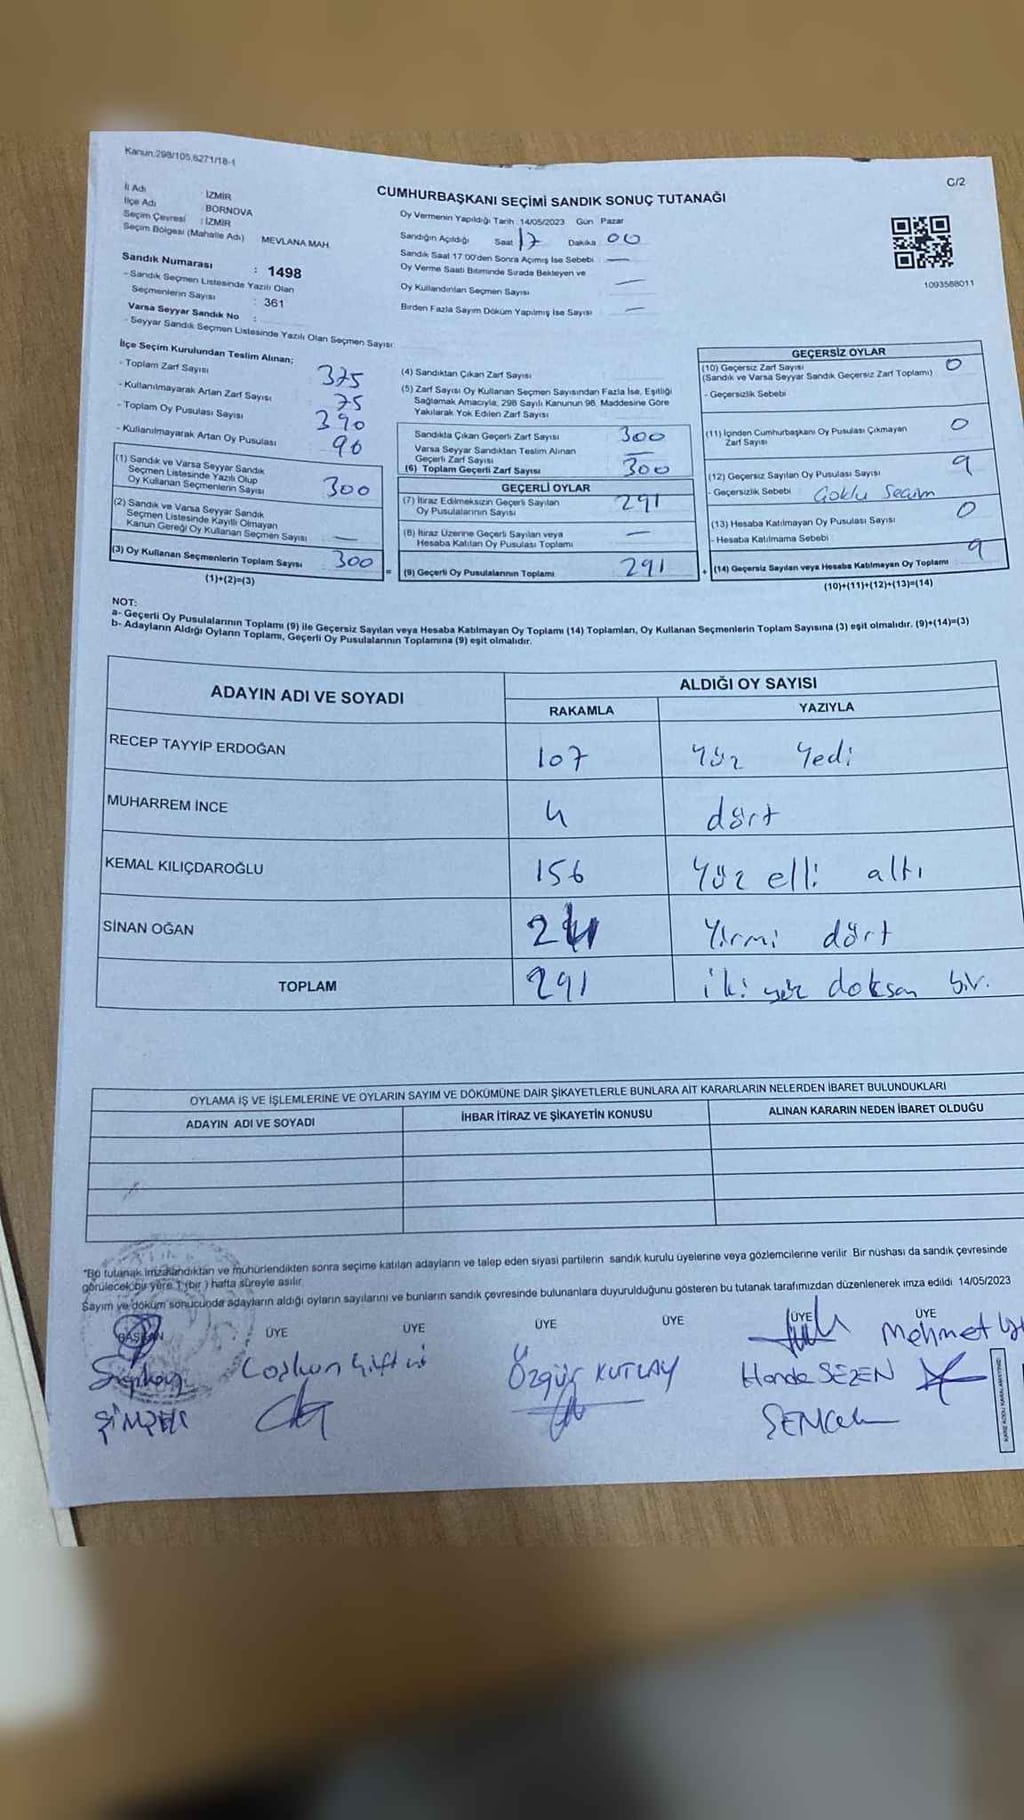 Kanun.298/105,6271/18-1
C/2
CUMHURBAŞKANI SEÇİMİ SANDIK SONUÇ TUTANAĞI
İl Adı : İZMİR
İlçe Adı : BORNOVA
Seçim Çevresi : İZMİR
Seçim Bölgesi (Mahalle Adı) MEVLANA MAH.
Sandık Numarası : 1498
- Sandık Seçmen Listesinde Yazılı Olan
Seçmenlerin Sayısı : 361
Varsa Seyyar Sandık No :
- Seyyar Sandık Seçmen Listesinde Yazılı Olan Seçmen Sayısı:
Oy Vermenin Yapıldığı Tarih 14/05/2023 Gün Pazar
Sandığın Açıldığı Saat 17 Dakika 00
Sandık Saat 17.00'den Sonra Açılmış İse Sebebi —
Oy Verme Saati Bitiminde Sırada Bekleyen ve
Oy Kullandırılan Seçmen Sayısı —
Birden Fazla Sayım Döküm Yapılmış İse Sayısı —
1093568011
İlçe Seçim Kurulundan Teslim Alınan;
- Toplam Zarf Sayısı 375
- Kullanılmayarak Artan Zarf Sayısı 75
- Toplam Oy Pusulası Sayısı 390
- Kullanılmayarak Artan Oy Pusulası 90
(1) Sandık ve Varsa Seyyar Sandık
Seçmen Listesinde Yazılı Olup
Oy Kullanan Seçmenlerin Sayısı 300
(2) Sandık ve Varsa Seyyar Sandık
Seçmen Listesinde Kayıtlı Olmayan
Kanun Gereği Oy Kullanan Seçmen Sayısı —
(3) Oy Kullanan Seçmenlerin Toplam Sayısı 300
(1)+(2)=(3)
(4) Sandıktan Çıkan Zarf Sayısı
(5) Zarf Sayısı Oy Kullanan Seçmen Sayısından Fazla İse, Eşitliği
Sağlamak Amacıyla, 298 Sayılı Kanunun 98. Maddesine Göre
Yakılarak Yok Edilen Zarf Sayısı
Sandıkta Çıkan Geçerli Zarf Sayısı 300
Varsa Seyyar Sandıktan Teslim Alınan
Geçerli Zarf Sayısı —
(6) Toplam Geçerli Zarf Sayısı 300
GEÇERLİ OYLAR
(7) İtiraz Edilmeksizin Geçerli Sayılan
Oy Pusulalarının Sayısı 291
(8) İtiraz Üzerine Geçerli Sayılan veya
Hesaba Katılan Oy Pusulası Toplamı —
= (9) Geçerli Oy Pusulalarının Toplamı 291 +
GEÇERSİZ OYLAR
(10) Geçersiz Zarf Sayısı 0
(Sandık ve Varsa Seyyar Sandık Geçersiz Zarf Toplamı)
- Geçersizlik Sebebi
(11) İçinden Cumhurbaşkanı Oy Pusulası Çıkmayan
Zarf Sayısı 0
(12) Geçersiz Sayılan Oy Pusulası Sayısı 9
- Geçersizlik Sebebi Çoklu Seçim
(13) Hesaba Katılmayan Oy Pusulası Sayısı 0
- Hesaba Katılmama Sebebi
(14) Geçersiz Sayılan veya Hesaba Katılmayan Oy Toplamı 9
(10)+(11)+(12)+(13)=(14)
NOT:
a- Geçerli Oy Pusulalarının Toplamı (9) ile Geçersiz Sayılan veya Hesaba Katılmayan Oy Toplamı (14) Toplamları, Oy Kullanan Seçmenlerin Toplam Sayısına (3) eşit olmalıdır. (9)+(14)=(3)
b- Adayların Aldığı Oyların Toplamı, Geçerli Oy Pusulalarının Toplamına (9) eşit olmalıdır.
ADAYIN ADI VE SOYADI ALDIĞI OY SAYISI
RAKAMLA YAZIYLA
RECEP TAYYİP ERDOĞAN 107 Yüz Yedi
MUHARREM İNCE 4 dört
KEMAL KILIÇDAROĞLU 156 Yüz elli altı
SİNAN OĞAN 24 Yirmi dört
TOPLAM 291 iki yüz doksan bir.
OYLAMA İŞ VE İŞLEMLERİNE VE OYLARIN SAYIM VE DÖKÜMÜNE DAİR ŞİKAYETLERLE BUNLARA AİT KARARLARIN NELERDEN İBARET BULUNDUKLARI
ADAYIN ADI VE SOYADI İHBAR İTİRAZ VE ŞİKAYETİN KONUSU ALINAN KARARIN NEDEN İBARET OLDUĞU
*Bu tutanak imzalandıktan ve mühürlendikten sonra seçime katılan adayların ve talep eden siyasi partilerin sandık kurulu üyelerine veya gözlemcilerine verilir. Bir nüshası da sandık çevresinde
görülecek bir yere 1 (bir) hafta süreyle asılır.
Sayım ve döküm sonucunda adayların aldığı oyların sayılarını ve bunların sandık çevresinde bulunanlara duyurulduğunu gösteren bu tutanak tarafımızdan düzenlenerek imza edildi 14/05/2023
BAŞKAN ÜYE ÜYE ÜYE ÜYE ÜYE ÜYE
Coşkun Çiftçi Özgür KUTLAY Hande SEZEN Mehmet
ŞİMŞEK SENCAN